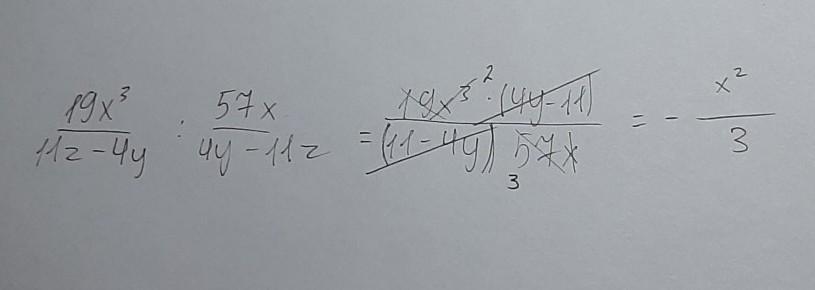 19x³/(11z-4y) : 57x/(4y-11z) = 19x³ ² · (4y-11)/(11-4y) 57x 3 = - x²/3